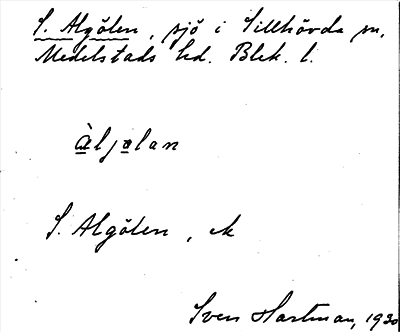 S. Algölen, sjö i Sillhövda sn,
Medelstads hd. Blek. l.
àljølan
S. Algölen, ek
Sven Hartman, 1930